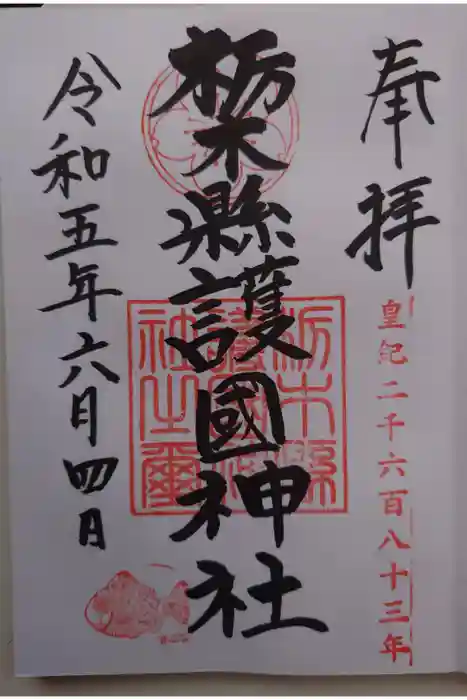 奉拝
皇紀二千六百八十三年
栃木縣護國神社
栃木縣護國神社之璽
令和五年六月四日